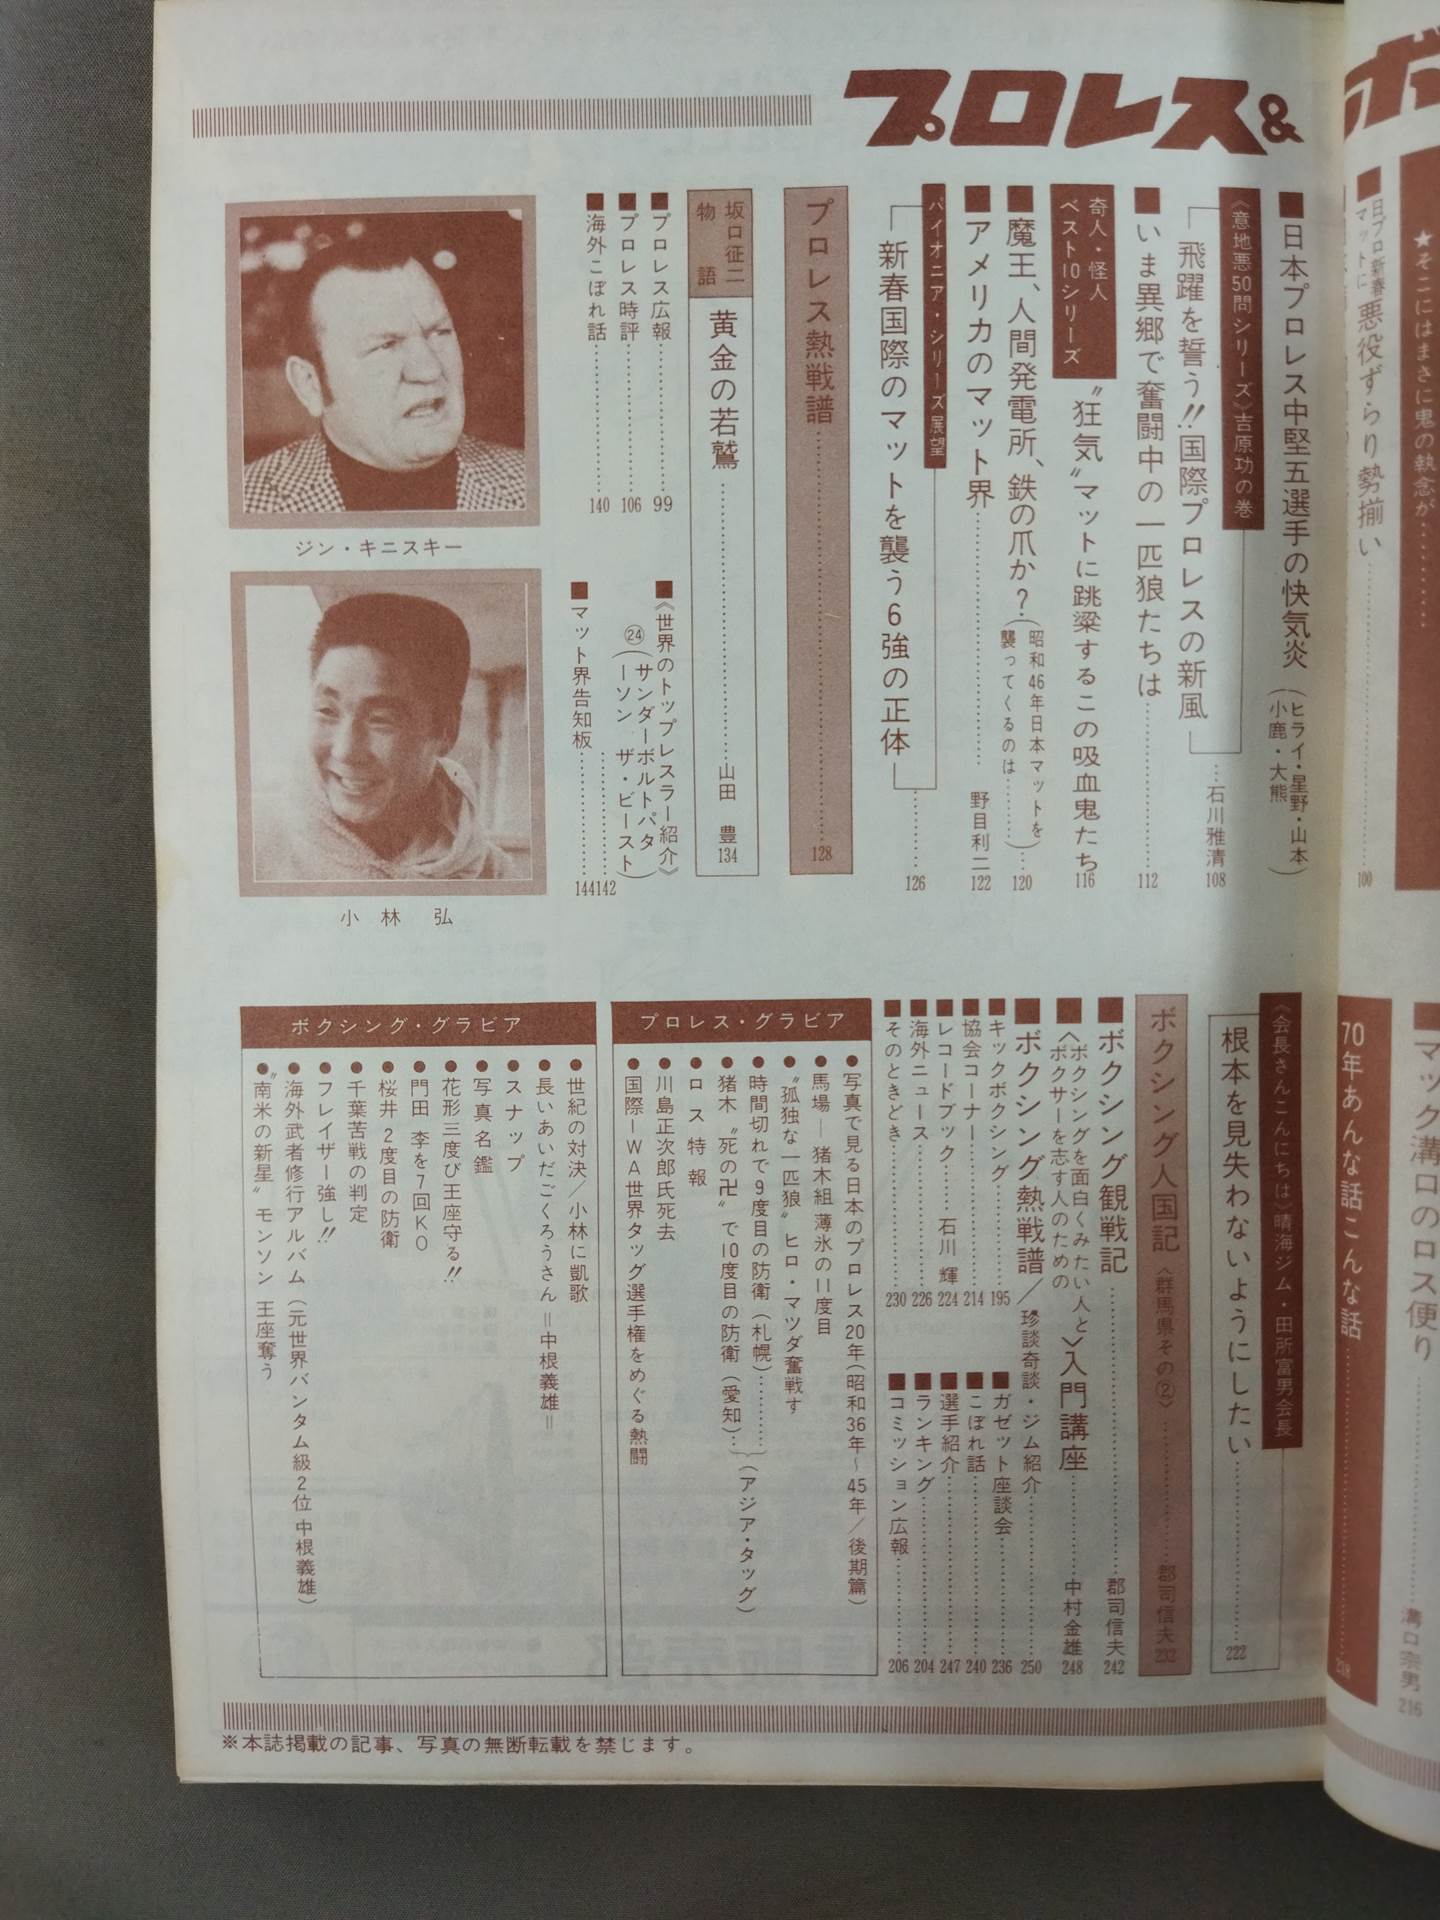 プロレス&
★そこにはまさに鬼の執念が…………
日プロ新春マットに 悪役ずらり勢揃い…………100
■日本プロレス中堅五選手の快気炎(ヒライ・星野・山本 小鹿・大熊)
《意地悪50問シリーズ》吉原功の巻
飛躍を誓う!!国際プロレスの新風…石川雅清 108
■いま異郷で奮闘中の一匹狼たちは…………112
奇人・怪人ベスト10シリーズ
〝狂気〟マットに跳梁するこの吸血鬼たち 116
■魔王、人間発電所、鉄の爪か?(昭和46年日本マットを襲ってくるのは………)…120
■アメリカのマット界…………野目利二 122
パイオニア・シリーズ展望
新春国際のマットを襲う6強の正体…………126
プロレス熱戦譜…………128
坂口征二物語
黄金の若鷲…………山田 豊 134
■プロレス広報…………99
■プロレス時評…………106
■海外こぼれ話…………140
■《世界のトップレスラー紹介》㉔(サンダーボルトパターソン ザ・ビースト)…142
■マット界告知板…………144
ジン・キニスキー
小林 弘
マック溝口のロス便り…………溝口宗男 216
70年あんな話こんな話…………218
《会長さんこんにちは》晴海ジム・田所富男会長
根本を見失わないようにしたい…………222
ボクシング人国記〈群馬県その②〉…………郡司信夫 232
■ボクシング観戦記…………郡司信夫 242
■〈ボクシングを面白くみたい人とボクサーを志す人のための〉入門講座…………中村金雄 248
■ボクシング熱戦譜/珍談奇談・ジム紹介…………250
■キックボクシング…………195
■協会コーナー…………214
■レコードブック…………石川 輝 224
■海外ニュース…………226
■そのときどき…………230
■ガゼット座談会…………236
■こぼれ話…………240
■選手紹介…………247
■ランキング…………204
■コミッション広報…………206
プロレス・グラビア
●写真で見る日本のプロレス20年(昭和36年〜45年/後期篇)
●馬場―猪木組 薄氷の11度目
●〝孤独な一匹狼〟ヒロ・マツダ奮戦す
●時間切れで9度目の防衛(札幌)…………
●猪木〝死の卍〟で10度目の防衛(愛知)…(アジア・タッグ)
●ロス特報
●川島正次郎氏死去
●国際IWA世界タッグ選手権をめぐる熱闘
ボクシング・グラビア
●世紀の対決/小林に凱歌
●長いあいだごくろうさん=中根義雄=
●スナップ
●写真名鑑
●花形三度び王座守る!!
●門田 李を7回KO
●桜井 2度目の防衛
●千葉苦戦の判定
●フレイザー強し!!
●海外武者修行アルバム(元世界バンタム級2位 中根義雄)
●〝南米の新星〟モンソン 王座奪う
※本誌掲載の記事、写真の無断転載を禁じます。